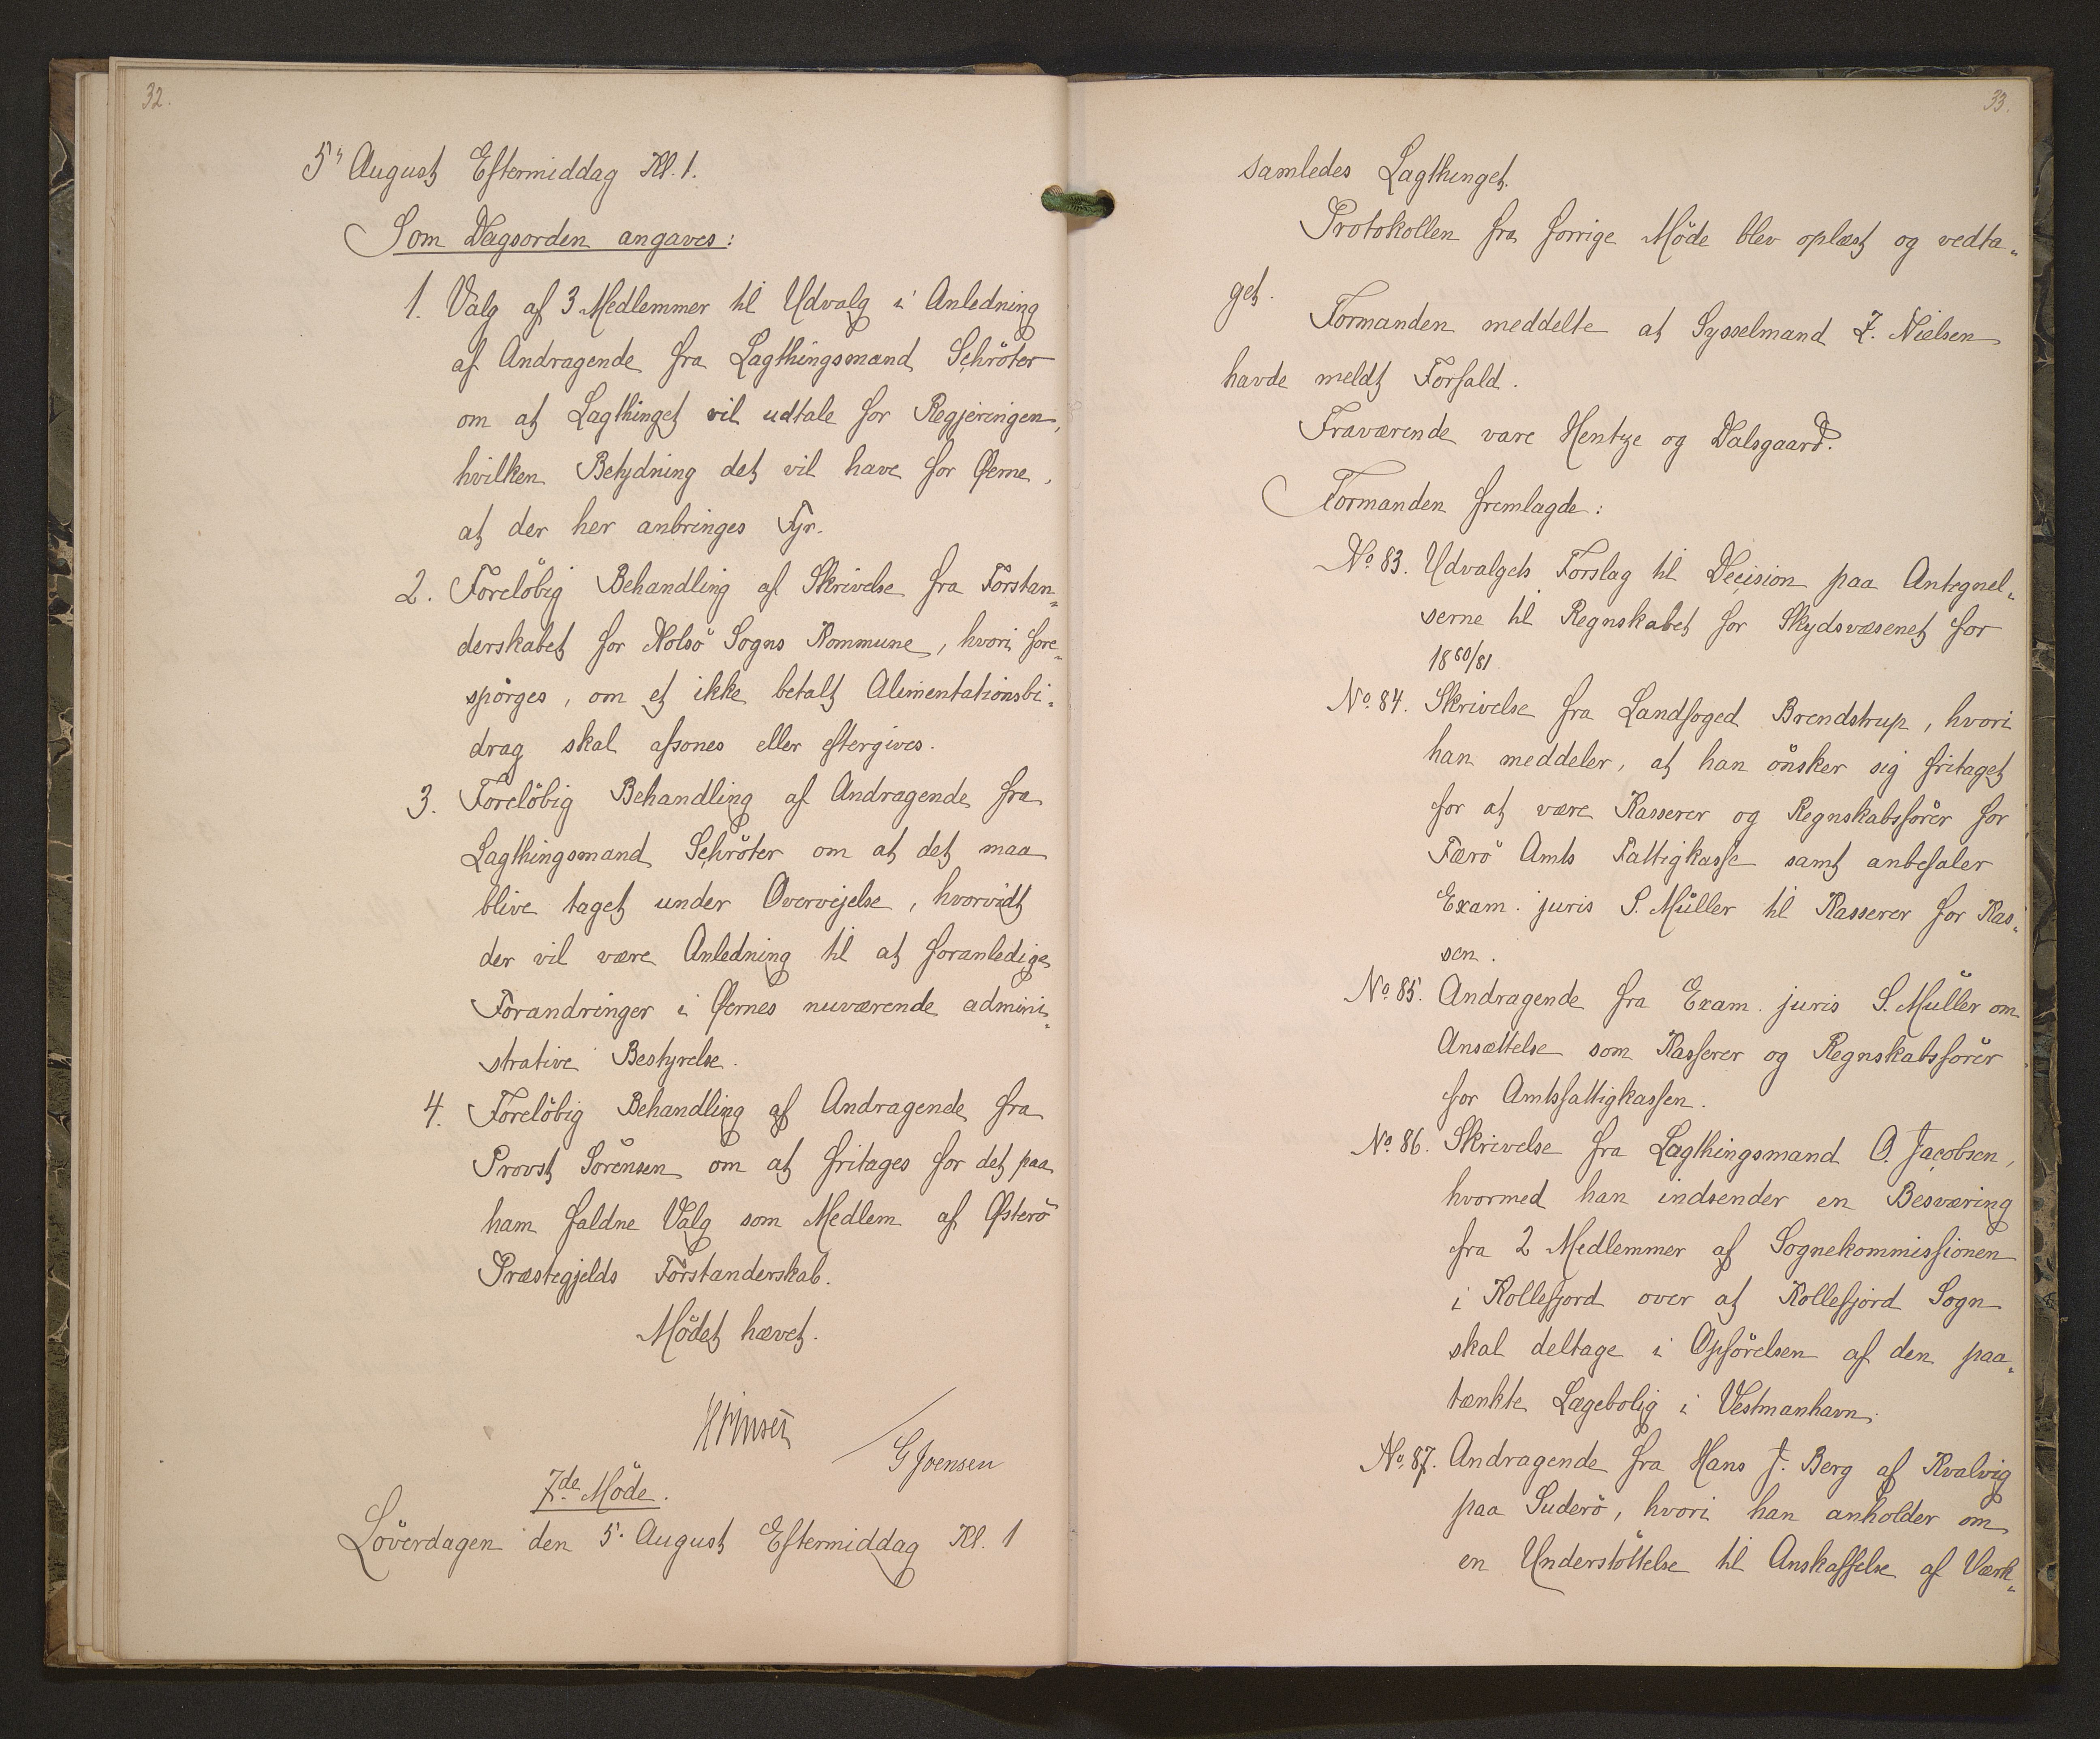 32.
5' August Eftermiddag Kl. 1.
Som Dagsorden angaves:
1. Valg af 3 Medlemmer til Udvalg i Anledning
af Andragende fra Lagthingsmand Schröter
om at Lagthinget vil udtale for Regjeringen,
hvilken Betydning det vil have for Øerne,
at der her anbringes Fyr.
2. Foreløbig Behandling af Skrivelse fra Forstan„
derskabet for Nolsö Sogns Kommune, hvori fore„
spörges, om et ikke betalt Alimentationsbi„
drag skal afsones eller eftergives.
3. Forelöbig Behandling af Andragende fra
Lagthingsmand Schröter om at det maa
blive taget under Overvejelse, hvorvidt
der vil være Anledning til at foranledige
Forandringer i Øernes nuværende admini„
strative Bestyrelse.
4. Forelöbig Behandling af Andragende fra
Provst Sörensen om at fritages for det paa
ham faldne Valg som Medlem af Østerö
Præstegjelds Forstanderskab.
Mödet hævet.
G Joensen
7de Möde.
Löverdagen den 5. August Eftermiddag Kl. 1
33.
samledes Lagthinget.
Protokollen fra forrige Möde blev oplæst og vedta„
get.
Formanden meddelte at Sysselmand J. Nielsen
havde meldt Forfald.
Fraværende vare Hentze og Dalsgaard.
Formanden fremlagde:
No. 83. Udvalgets Forslag til Decision paa Antegnel„
serne til Regnskabet for Skydsvæsenet for
1880/81.
No. 84. Skrivelse fra Landfoged Brendstrup, hvori
han meddeler, at han önsker sig fritaget
for at være Kasserer og Regnskabsförer for
Færö Amts Fattigkasse samt anbefaler
Exam. juris S. Müller til Kasserer for Kas„
sen.
No. 85. Andragende fra Exam. juris S. Müller om
Ansættelse som Kasserer og Regnskabsförer
for Amtsfattigkassen.
No. 86. Skrivelse fra Lagthingsmand O. Jacobsen,
hvormed han indsender en Besværing
fra 2 Medlemmer af Sognekommissionen
i Kollefjord over at Kollefjord Sogn
skal deltage i Opförelsen af den paa„
tænkte Lægebolig i Vestmanhavn.
No. 87. Andragende fra Hans J. Berg af Kvalvig
paa Suderö, hvori han anholder om
en Understöttelse til Anskaffelse af Værk„